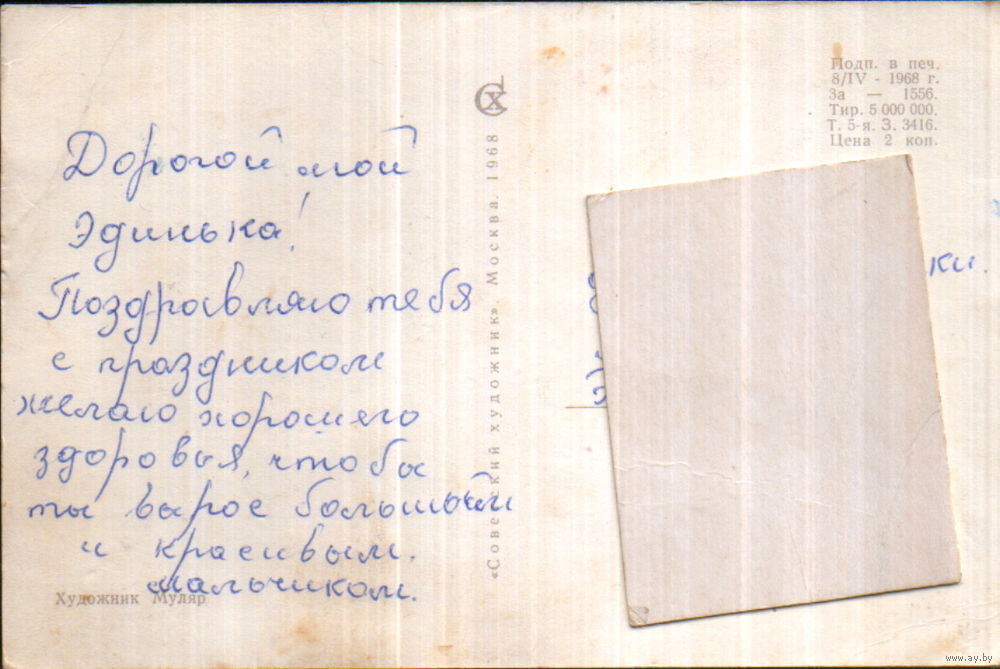 Дорогой мой
Эдинька!
Поздравляю тебя
с праздником
желаю хорошего
здоровья, чтобы
ты вырос большым
и красивым.
мальчиком.
Художник Муляр
«Советский художник». Москва. 1968
СХ
Подп. в печ.
8/IV - 1968 г.
За — 1556.
Тир. 5 000 000.
Т. 5-я. З. 3416.
Цена 2 коп.
ки.
www.ay.by